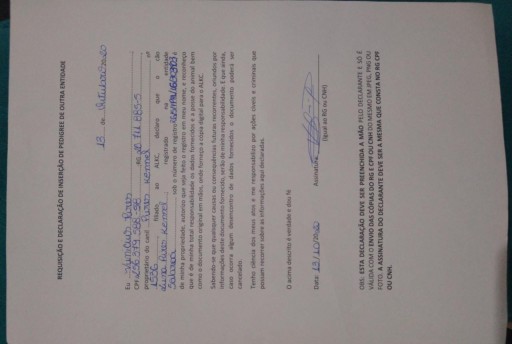 REQUISIÇÃO E DECLARAÇÃO DE INSERÇÃO DE PEDIGREE DE OUTRA ENTIDADE
13 de outubro 2020
Eu
CPF
proprietário do canil Kennel nº
1556 filiado, ao ALKC, declaro que o cão
Kennel registrado na entidade
sob o número de registro a
de minha propriedade, autorizo que seja feito o registro em meu nome, e reconheço
que é de minha total responsabilidade os dados fornecidos e a posse do animal bem
como o documento original em mãos, onde forneço a cópia digital para o ALKC.
Sabendo-se que quaisquer causas ou consequências futuras recorrentes, oriundos por
informações deste documento fornecido, serão de minha responsabilidade. E que ainda,
caso ocorra algum desencontro de dados fornecidos o documento poderá ser
cancelado.
Tenho ciência dos meus atos e me responsabilizo por ações cíveis e criminais que
possam recorrer sobre as informações aqui declaradas.
O acima descrito é verdade e dou fé
Data: 13/10/2020 Assinatura
(Igual ao RG ou CNH)
OBS: ESTA DECLARAÇÃO DEVE SER PREENCHIDA A MÃO PELO DECLARANTE E SÓ É
VÁLIDA COM O ENVIO DAS CÓPIAS DO RG E CPF OU CNH DO MESMO EM JPEG, PNG OU
FOTO. A ASSINATURA DO DECLARANTE DEVE SER A MESMA QUE CONSTA NO RG CPF
OU CNH.